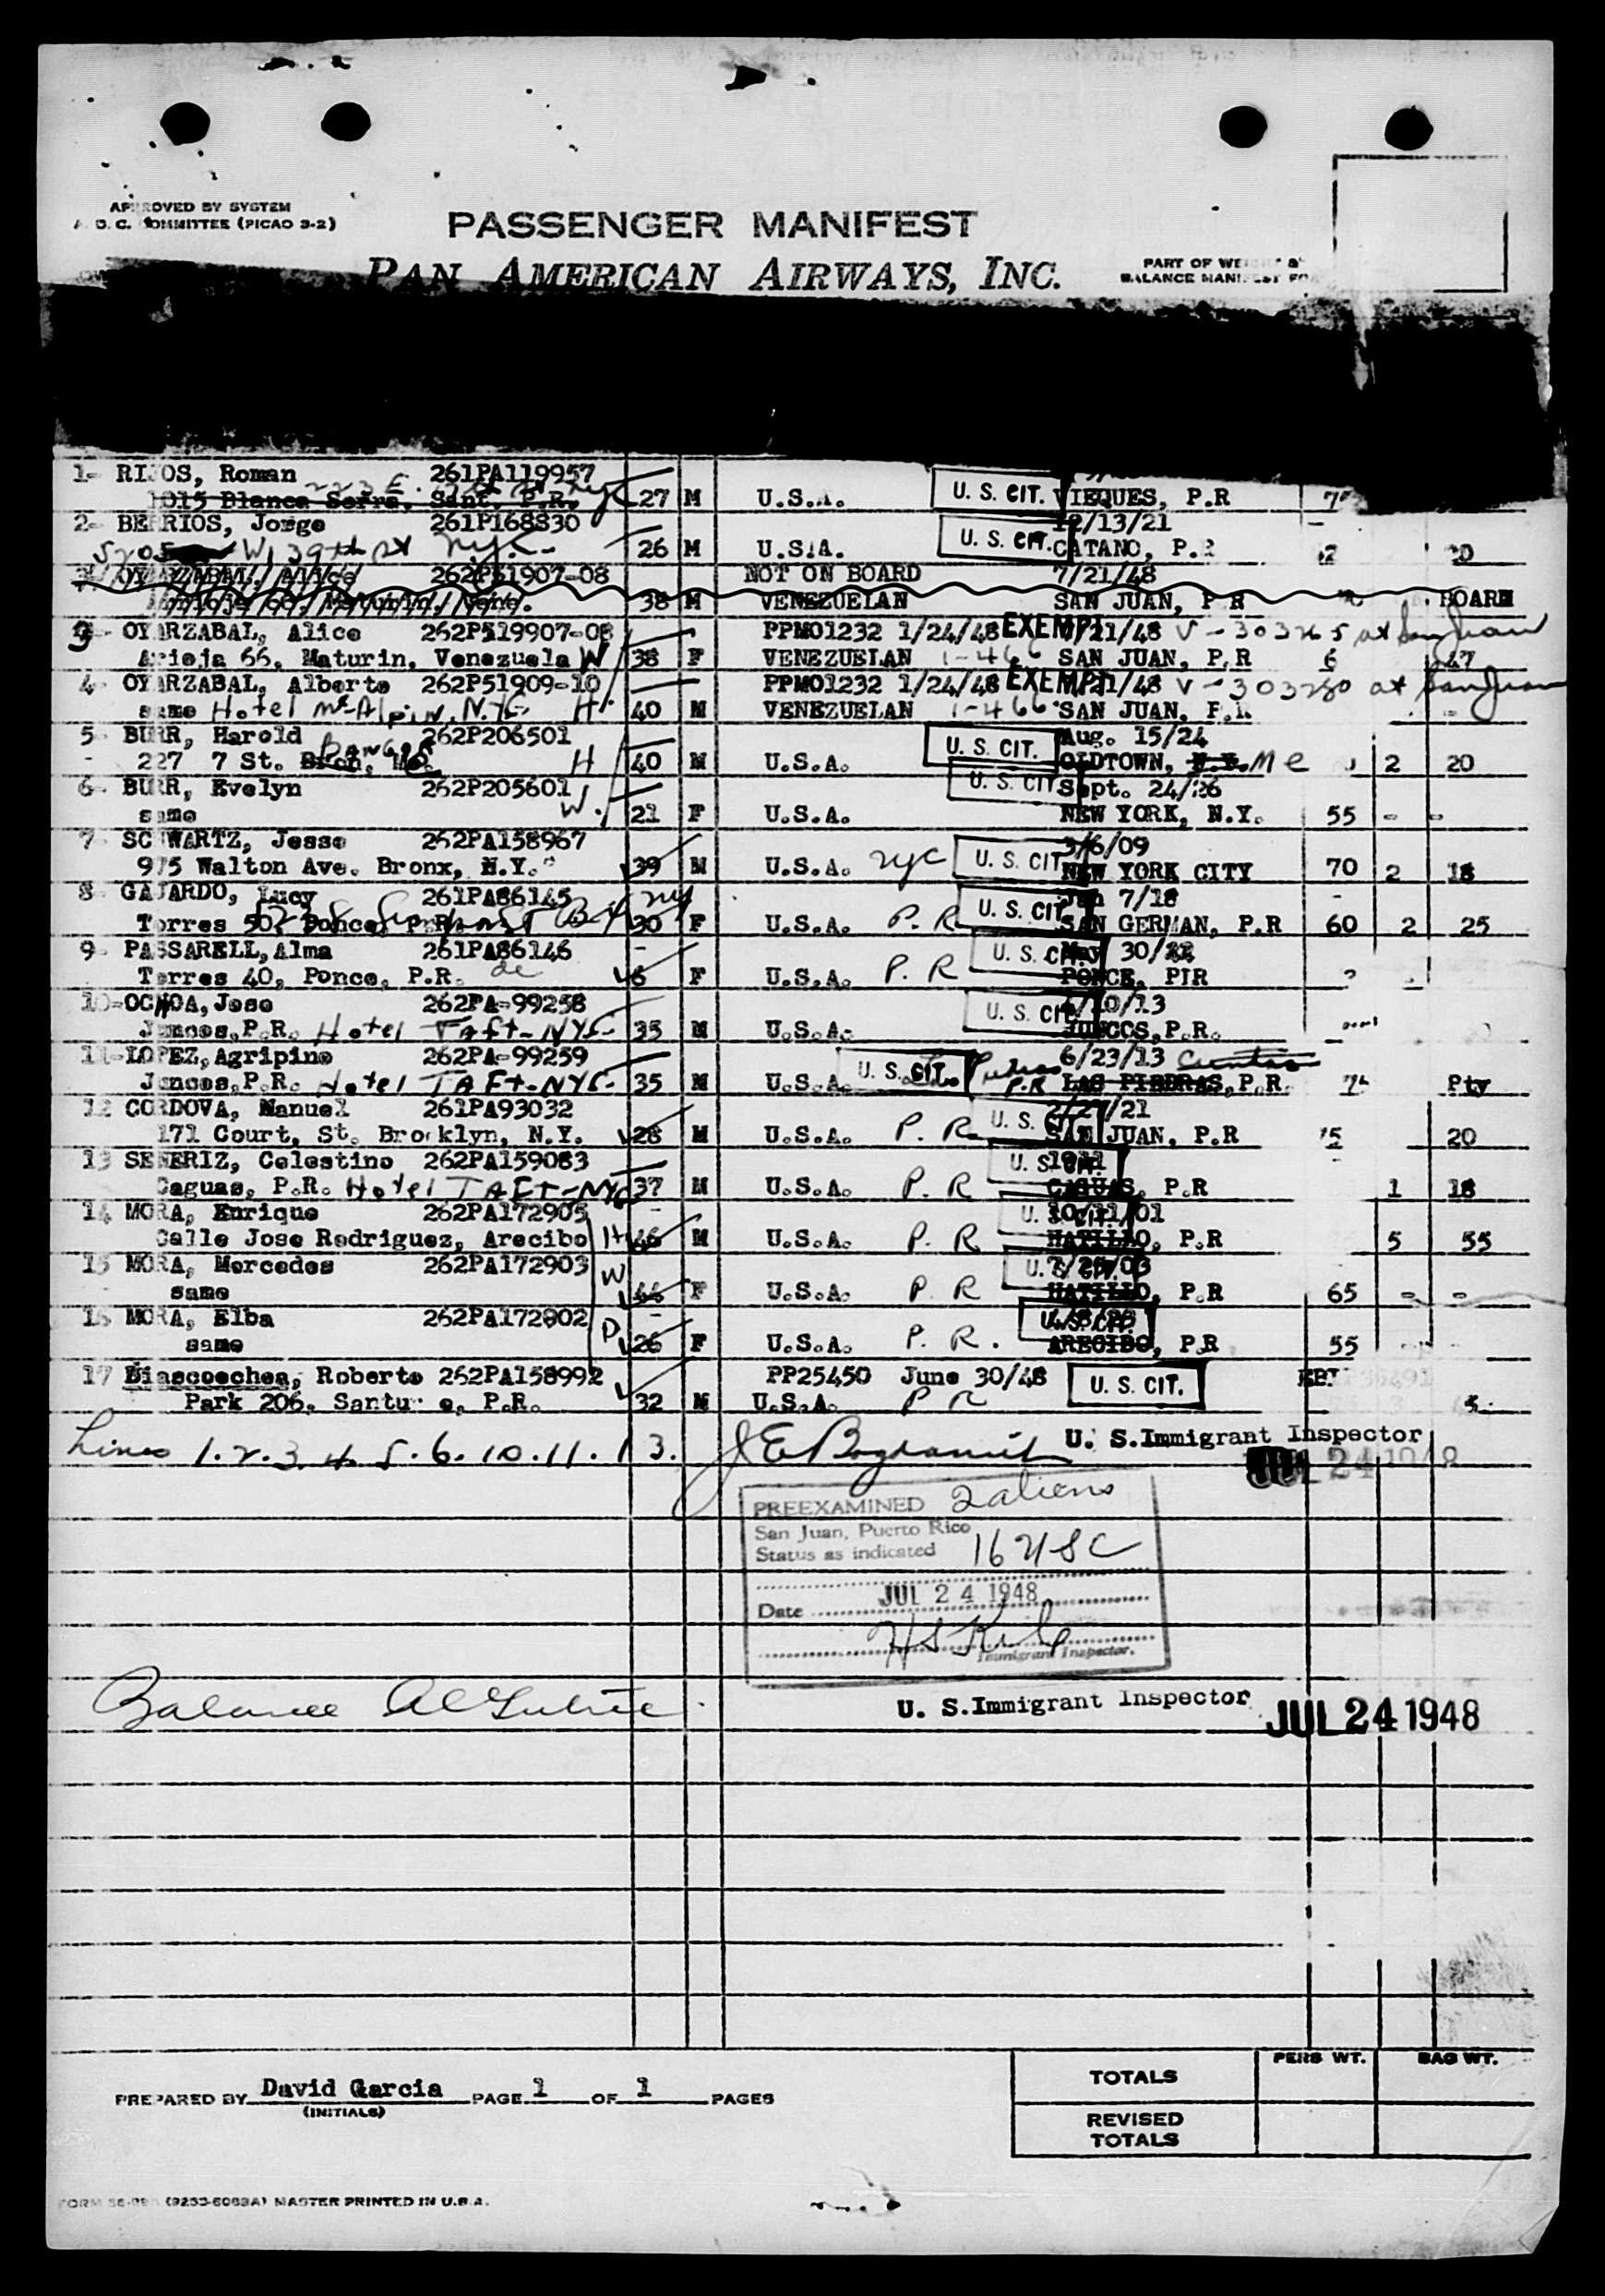 APPROVED BY SYSTEM
A.O.C. COMMITTEE (PICAO 3-2)
PASSENGER MANIFEST
PAN AMERICAN AIRWAYS, INC.
PART OF WEIGHT &
BALANCE MANIFEST FO
1- RIJOS, Roman 261PA119957
1015 Blanca Serra, Sant, P.R. 27 M U.S.A. U. S. CIT. VIEQUES, P.R
2- BERRIOS, Jorge 261P168830 12/13/21
5205 W. 39th St NYC 26 M U.S.A. U. S. CIT. CATANO, P.R 20
3 OYARZABAL, Alice 262P51907-08 NOT ON BOARD 7/21/48
38 M VENEZUELAN SAN JUAN, P R BOARD
3- OYARZABAL, Alice 262P519907-08 PPM01232 1/24/48 EXEMPT 7/21/48 V-303265 at San Juan
Arioja 66, Maturin, Venezuela W 38 F VENEZUELAN 1-466 SAN JUAN, P.R 6 47
4- OYARZABAL, Alberto 262P51909-10 PPM01232 1/24/48 EXEMPT 7/21/48 V-303280 at San Juan
same Hotel McAlpin, NYC H. 40 M VENEZUELAN 1-466 SAN JUAN, P.R
5- BURR, Harold 262P206501 U. S. CIT. Aug. 15/24
227 7 St. Bangor H 40 M U.S.A. OLDTOWN, Me 2 20
6- BURR, Evelyn 262P205601 U. S. CIT Sept. 24/26
same W. 21 F U.S.A. NEW YORK, N.Y. 55 - -
7- SCHWARTZ, Jesse 262PA158967 3/6/09
975 Walton Ave. Bronx, N.Y. 39 M U.S.A. NYC U. S. CIT NEW YORK CITY 70 2 18
8- GAJARDO, Lucy 261PA86145 Jan 7/18
Torres 50, Ponce, P.R. 30 F U.S.A. P.R U. S. CIT. SAN GERMAN, P.R 60 2 25
9- PASSARELL, Alma 261PA86146 U. S. CIT. May 30/42
Torres 40, Ponce, P.R. de 6 F U.S.A. P.R PONCE, PIR
10-OCHOA, Jose 262PA-99258 /10/13
Juncos, P.R. Hotel Taft-NYC 35 M U.S.A. U. S. CIT JUNCOS, P.R.
11-LOPEZ, Agripino 262PA-99259 6/23/13
Juncos, P.R. Hotel TAFT-NYC. 35 M U.S.A. U. S. CIT. Piedras P.R LAS PIEDRAS, P.R. Pty
12 CORDOVA, Manuel 261PA93032 2/27/21
171 Court, St. Brooklyn, N.Y. 28 M U.S.A. P.R. U. S. CIT SAN JUAN, P.R 75 20
13 SENERIZ, Celestino 262PA159083 U. S. CIT. 1911
Caguas, P.R. Hotel TAFT-NYC 37 M U.S.A. P.R CAGUAS, P.R 1 18
14 MORA, Enrique 262PA172905 U. S. CIT. 10/11/01
Calle Jose Rodriguez, Arecibo H 46 M U.S.A. P.R HATILLO, P.R 5 55
15 MORA, Mercedes 262PA172903 U. S. CIT. 7/25/03
same W 44 F U.S.A. P R HATILLO, P.R 65 - -
16 MORA, Elba 262PA172902 U. S. CIT.
same D 26 F U.S.A. P.R. ARECIBO, P.R 55
17 Biascoechea, Roberto 262PA158992 PP25450 June 30/48 U. S. CIT.
Park 206, Santurce, P.R. 32 M U.S.A. P R
Lines 1.2.3.4.5.6.10.11.13. U. S. Immigrant Inspector
JUL 24 1948
PREEXAMINED 2 aliens
San Juan, Puerto Rico
Status as indicated 16 USC
Date JUL 24 1948
Immigrant Inspector.
Balance
U. S. Immigrant Inspector JUL 24 1948
PERS WT. BAG WT.
TOTALS
PREPARED BY David Garcia PAGE 1 OF 1 PAGES
(INITIALS)
REVISED
TOTALS
(9253-6083A) MASTER PRINTED IN U.S.A.